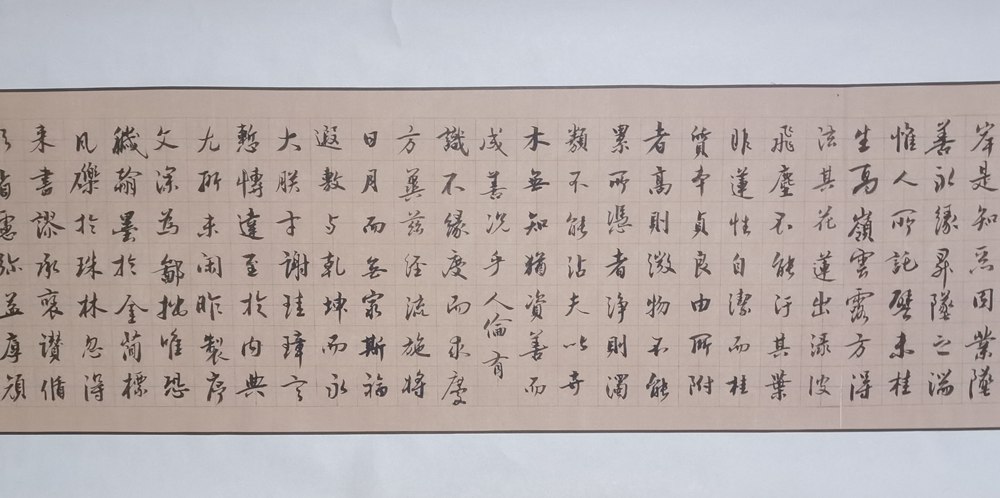 岸是知惡因業墜
善以緣昇墜之端
惟人所託譬夫桂
生高嶺雲露方得
泫其花蓮出淥波
飛塵不能汙其葉
非蓮性自潔而桂
質本貞良由所附
者高則微物不能
累所憑者淨則濁
類不能沾夫以卉
木無知猶資善而
成善况乎人倫有
識不緣慶而求慶
方冀茲經流施將
日月而無窮斯福
遐敷与乾坤而永
大朕才謝珪璋言
慙博達至於內典
尤所未閑昨製序
文深為鄙拙唯恐
穢翰墨於金簡標
瓦礫於珠林忽得
来書謬承褒讃循
省慮弥益厚顏